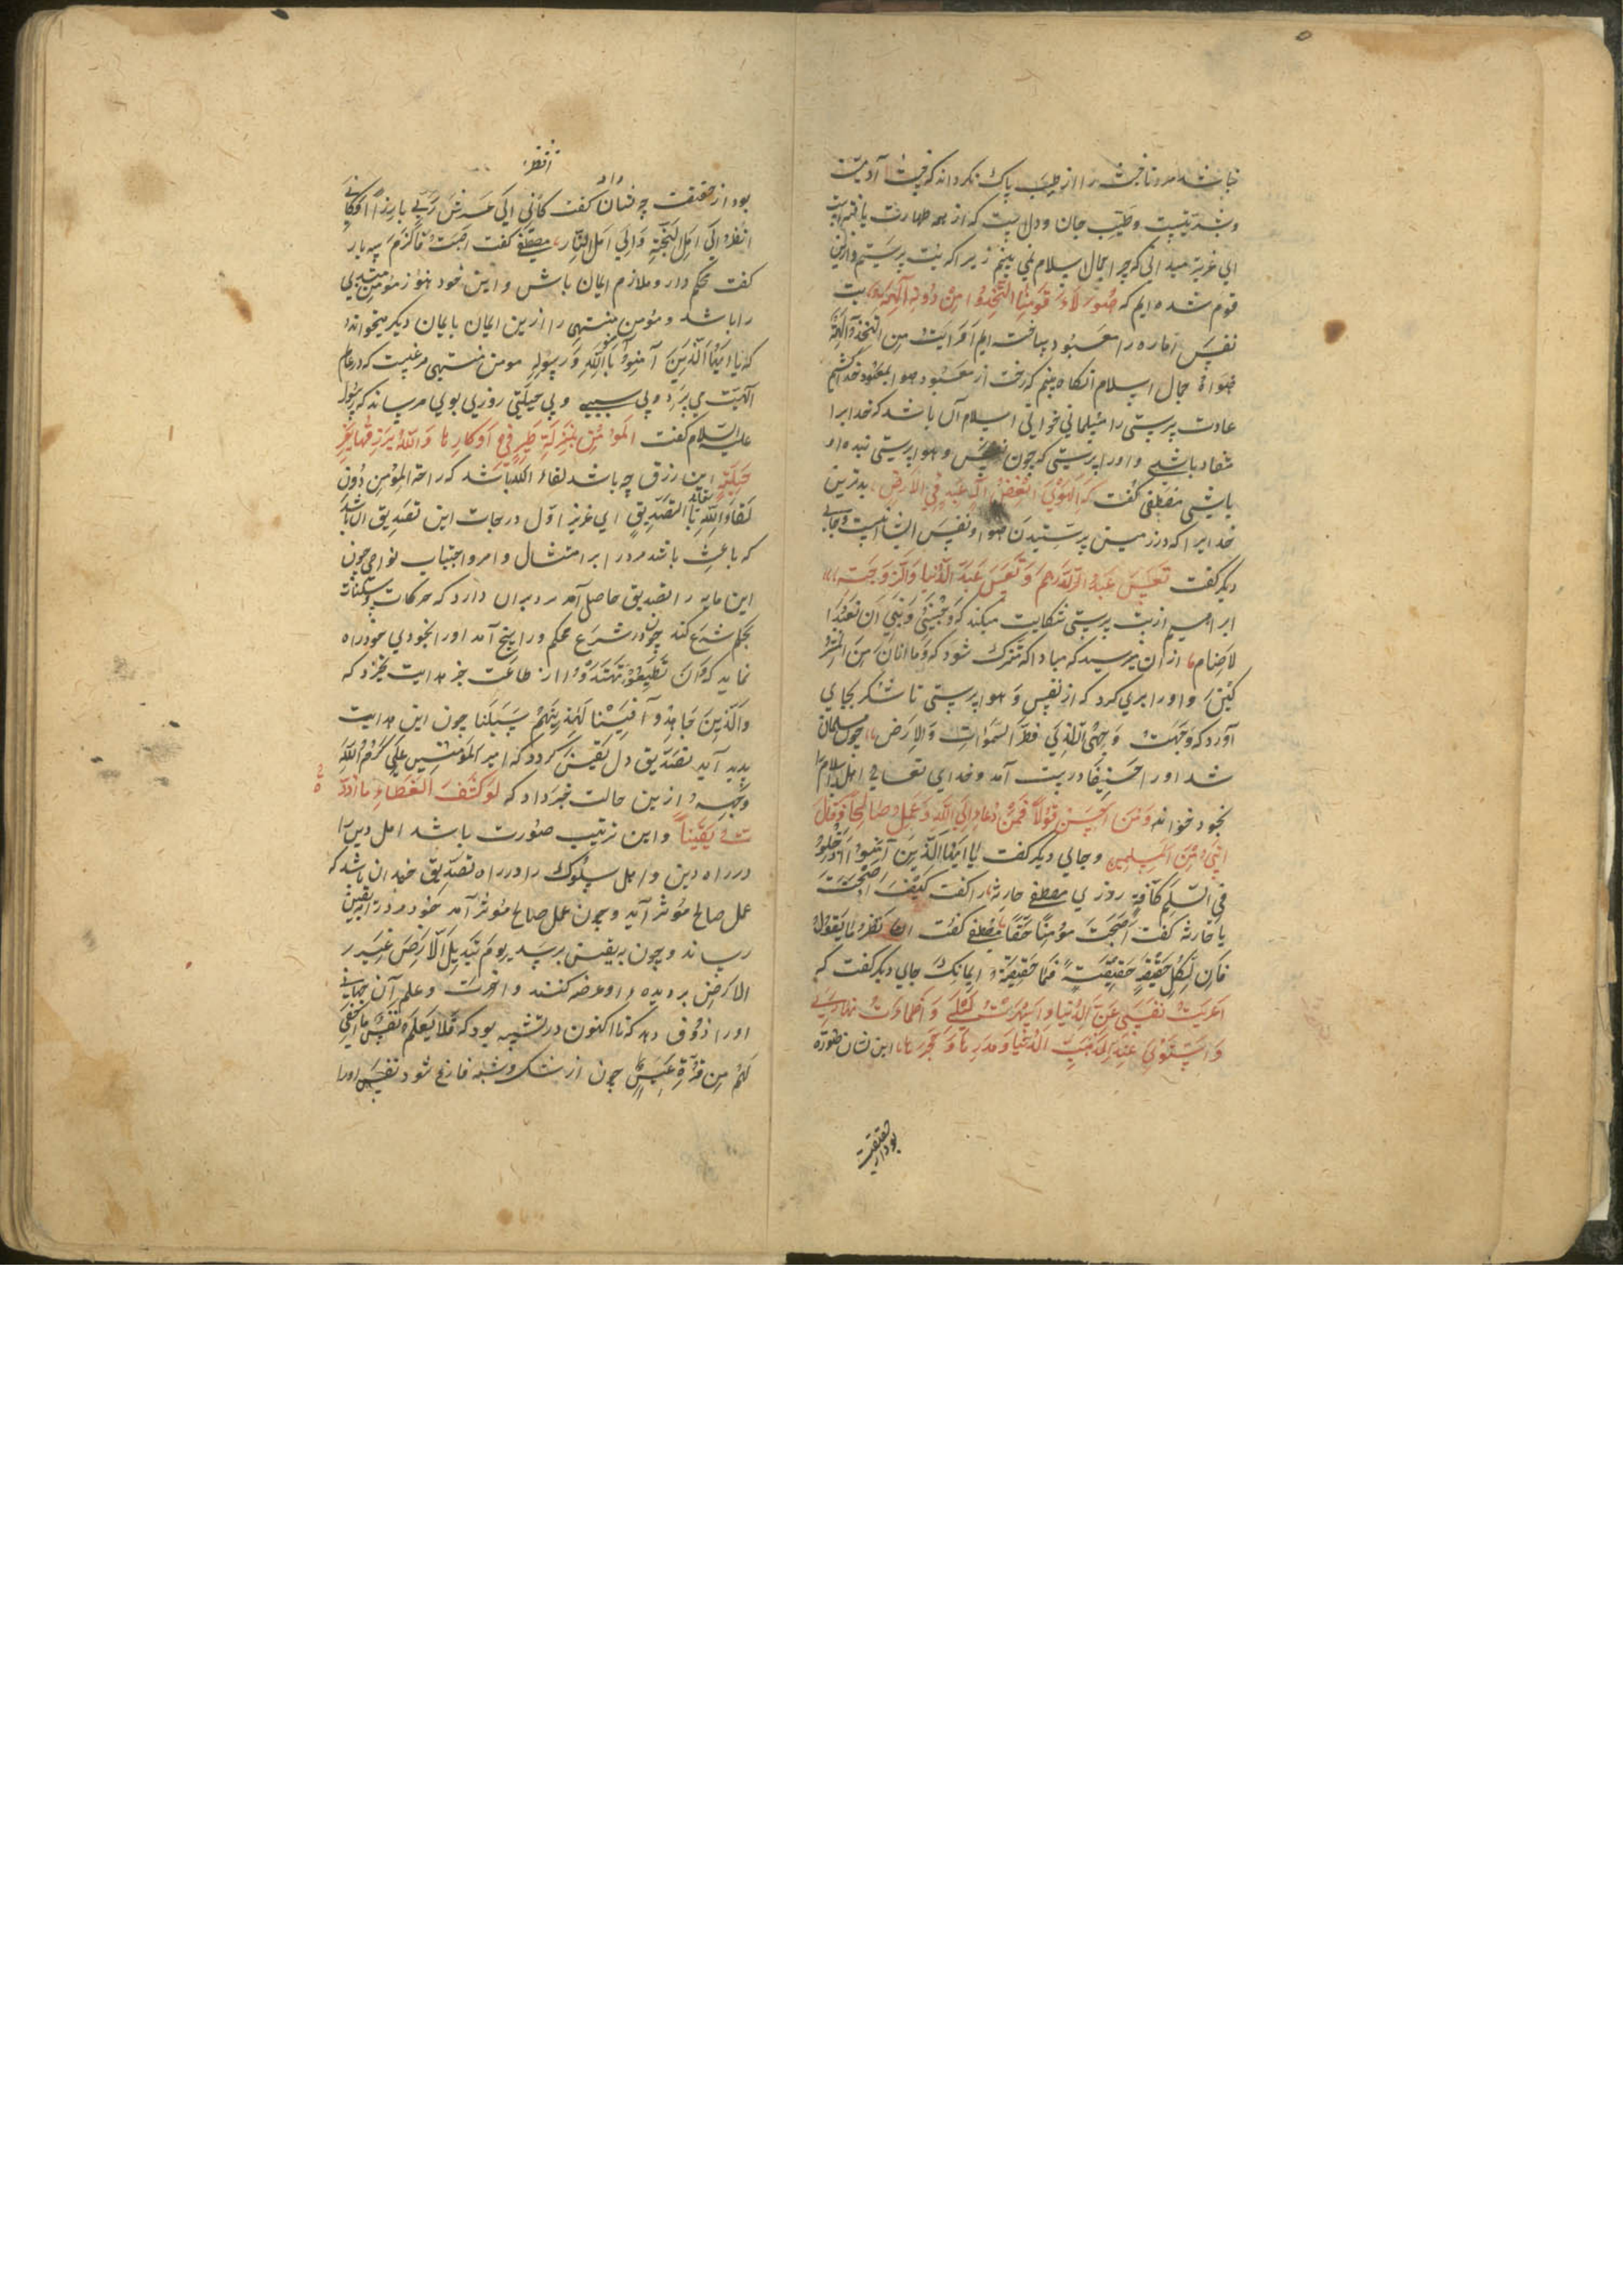 نباشد مرد تا خبث را از طیب پاک نکرداند که خبث آدمیت
و بشریتست و طیب جان و دلست که از همه طهارت یافته است
ای عزیز میدانی که چرا جمال اسلام نمی بینیم زیرا که بت پرستیم و ازین
قوم شده ایم که هٰؤلاء قومنا اتخذوا من دونه آلهة بت
نفس اماره را معبود ساخته ایم افرایت من اتخذ الهه
هواه جمال اسلام آنکاه بینیم که رخت از معبود هوا بمعبود خدا کشیم
عادت پرستی را مسلمانی خوانی اسلام آن باشد که خدایرا
منقاد باشی و او را پرستی که چون نفس و هوا پرستی بنده او
باشی مصطفی گفت که الهوی ابغض اله عبد فی الارض بدترین
خدایرا که در زمین پرستیدن هوا و نفس انسانیست و جائی
دیگر گفت تعس عبد الدراهم و تعس عبد الدنیا و الزوجة
ابراهیم از بت پرستی شکایت میکند که و جنبنی و بنی ان نعبد ا
لاصنام از آن ترسید که مبادا که مشرک شود که و ما انا من المشر
کین و او را بری کرد که از نفس و هوا پرستی تا شکر بجای
آورد که وجهت وجهی للذی فطر السموات و الارض چون مسلمان
شد او را حنیفا در بیت آمد و خدای تعالی اهل اسلام را
بخود خواند و من احسن قولا فممن دعا الی الله و عمل صالحا و قال
اننی من المسلمین و جائی دیگر گفت یا ایها الذین آمنوا ادخلوا
فی السلم کافة روزی مصطفی حارثه را گفت کیف اصبحت
یا حارثه گفت اصبحت مؤمنا حقا مصطفی گفت انظر ما یقول
فان لکل حق حقیقة فما حقیقة ایمانک جای دیگر گفت که
اعریت نفسی عن الدنیا و اسهرت لیلی و اظمات نهاری
و استوی عندی ذهب الدنیا و مدرها و حجرها این نشان ظهوره
بود از حقیقت
بود از حقیقت چه نشان داد گفت کانی الی عرش ربی بارزا و کانی
انظر الی اهل الجنة و الی اهل النار مصطفی گفت اصبت فالزم سه بار
گفت محکم دار و ملازم ایمان باش و این خود هنوز مؤمن مبتدی
را باشد و مؤمن منتهی را ازین ایمان بایمان دیگر میخواند
که یا ایها الذین آمنوا آمنوا بالله و رسوله مومن منتهی مرغیست که در عالم
الهیت می پرد و بی سببی و بی حیلتی روزیی بوی میرساند که رسول
علیه السلام گفت المؤمن بمنزلة طیر فی اوکارها و الله یرزقها بغیر
حیلة این رزق چه باشد لقاء الله باشد که راحة المؤمن دون
لقاء الله بالتصدیق ای عزیز اول درجات این تصدیق آن باشد
که باعث باشد مرد را بر امتثال اوامر و اجتناب نواهی چون
این مایه را تصدیق حاصل آمد مرد بران دارد که حرکات و سکنات
بحکم شرع کند چون در شرع محکم و راسخ آمد او را بخودی خود راه
نماید که و ان تطیعوه تهتدوا از طاعت جز هدایت نخیزد که
و الذین جاهدوا فینا لنهدینهم سبلنا چون این هدایت
پدید آید تصدیق دل یقین گردد که امیر المؤمنین علی کرم الله
وجهه ازین حالت خبر داد که لو کشف الغطاء ما ازدد
ت یقینا و این ترتیب صورت باشد اهل دین را
در راه دین و اهل سلوک را در راه تصدیق چندان باشد که
عمل صالح مؤثر آید و چون عمل صالح مؤثر آمد خود مرد را به یقین
رساند و چون به یقین برسد یوم تبدل الارض غیر
الارض بر دیده او عرضه کنند و آخرت و علم آن جهانی
او را ذوق دهد که تا اکنون در تشبیه بود که فلا تعلم نفس ما اخفی
لهم من قرة عین چون از شک و شبه فارغ شود نفس او را